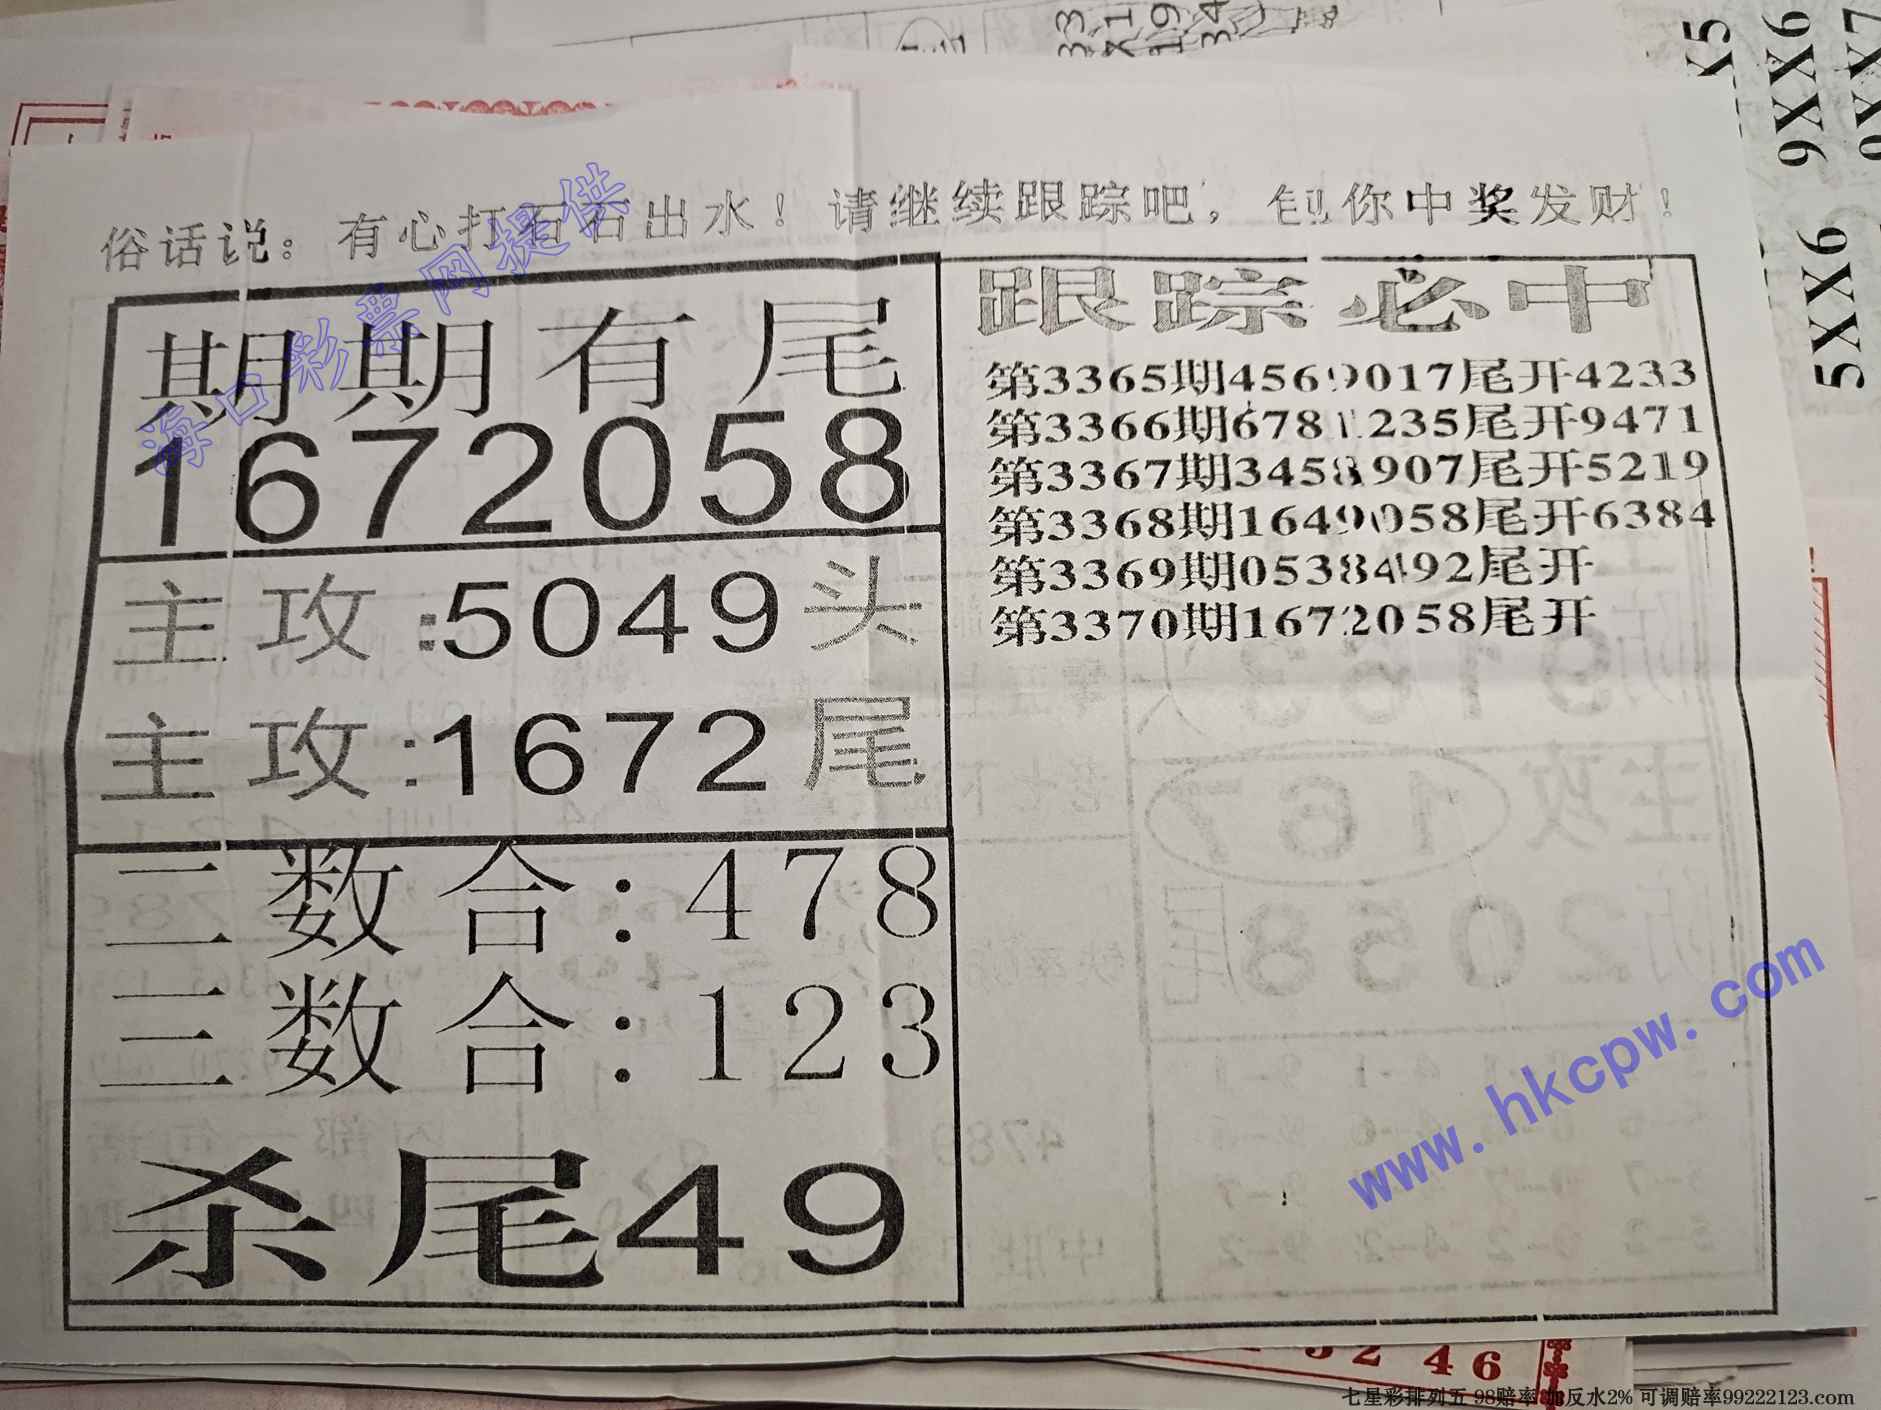 33
X1
19
34
X5
9XX6
9XX7
5XX6
俗话说：有心打石石出水！请继续跟踪吧，包你中奖发财！
海口彩票网提供
期期有尾
1672058
主攻:5049头
主攻:1672尾
二数合:478
三数合:123
杀尾49
跟踪必中
第3365期4569017尾开4233
第3366期6781235尾开9471
第3367期3458907尾开5219
第3368期1649058尾开6384
第3369期0538492尾开
第3370期1672058尾开
www.hkcpw.com
3246
七星彩排列五 98赔率 加反水2% 可调赔率99222123.com